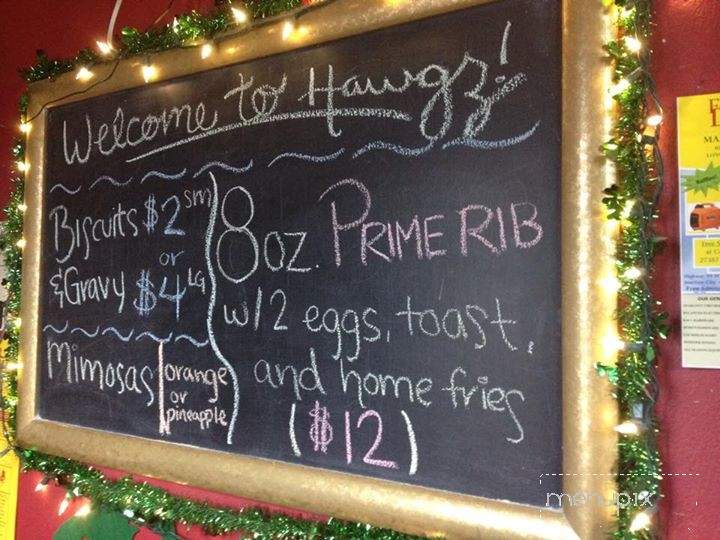 Welcome to Hawgz!
Biscuits $2 sm
or
& Gravy $4 LG
Mimosas orange
or
pineapple
8 oz. PRIME RIB
w/ 2 eggs, toast,
and home fries
($12)
menupix